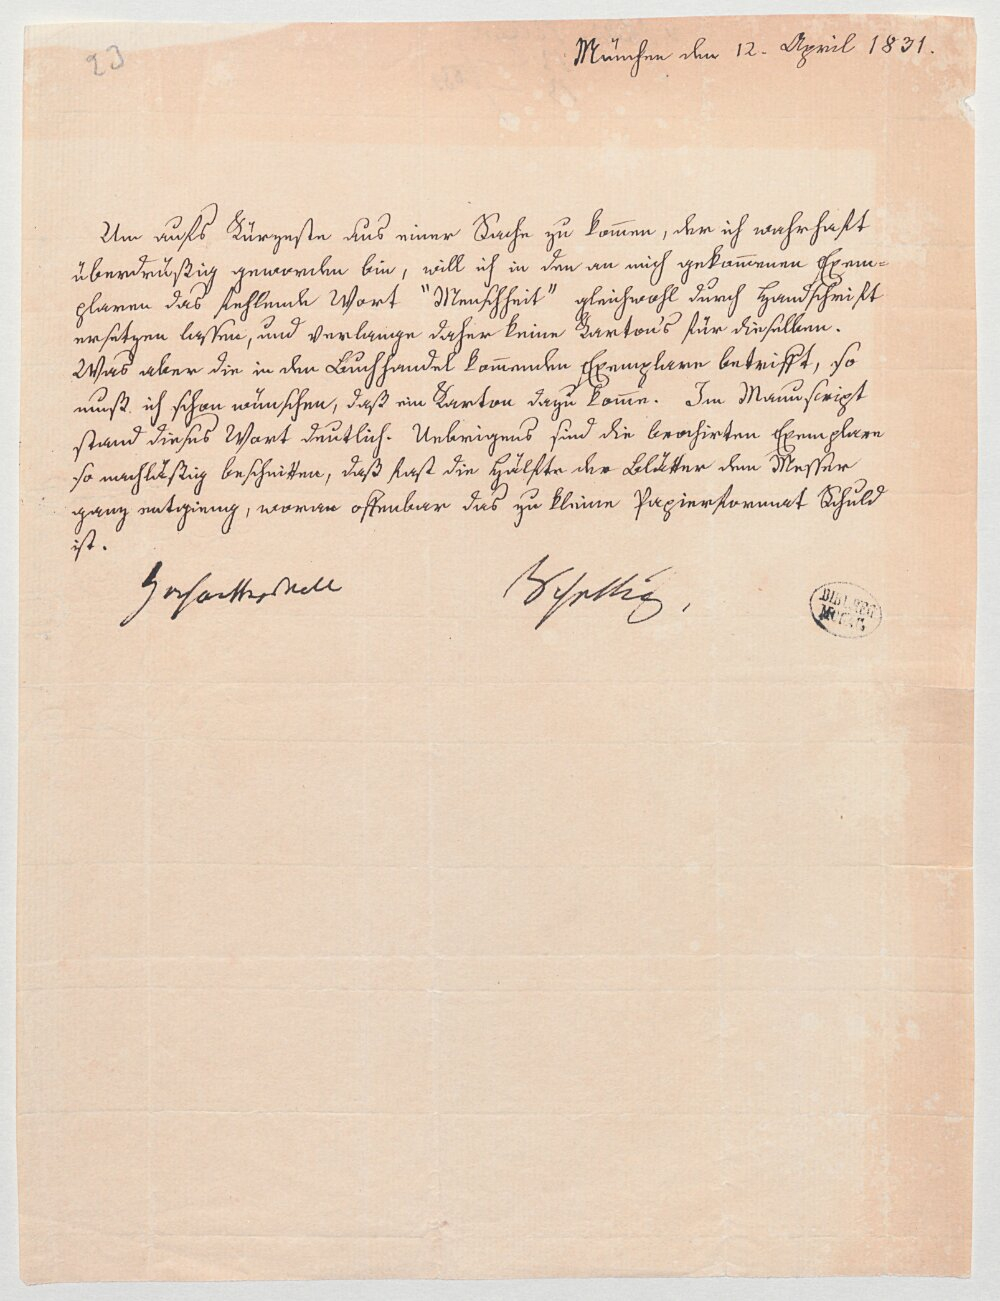 23
München den 12. April 1831.
Um aufs Kürzeste aus einer Sache zu kom̅en, der ich wahrhaft
überdrüßig geworden bin, will ich in den an mich gekom̅enen Exem-
plaren das fehlende Wort "Menschheit" gleichwohl durch Handschrift
ersetzen lassen, und verlange daher keine Karton's für dieselben.
Was aber die in den Buchhandel kom̅enden Exemplare betrifft, so
muß ich schon wünschen, daß ein Karton dazu kom̅e. Im Manuscript
stand dieses Wort deutlich. Uebrigens sind die brochirten Exemplare
so nachläßig beschnitten, daß fast die Hälfte der Blätter dem Messer
ganz entgieng, woran offenbar das zu kleine Papierformat Schuld
ist.
Hochachtungsvoll Schelling,
BIBL. REG
MONAC.